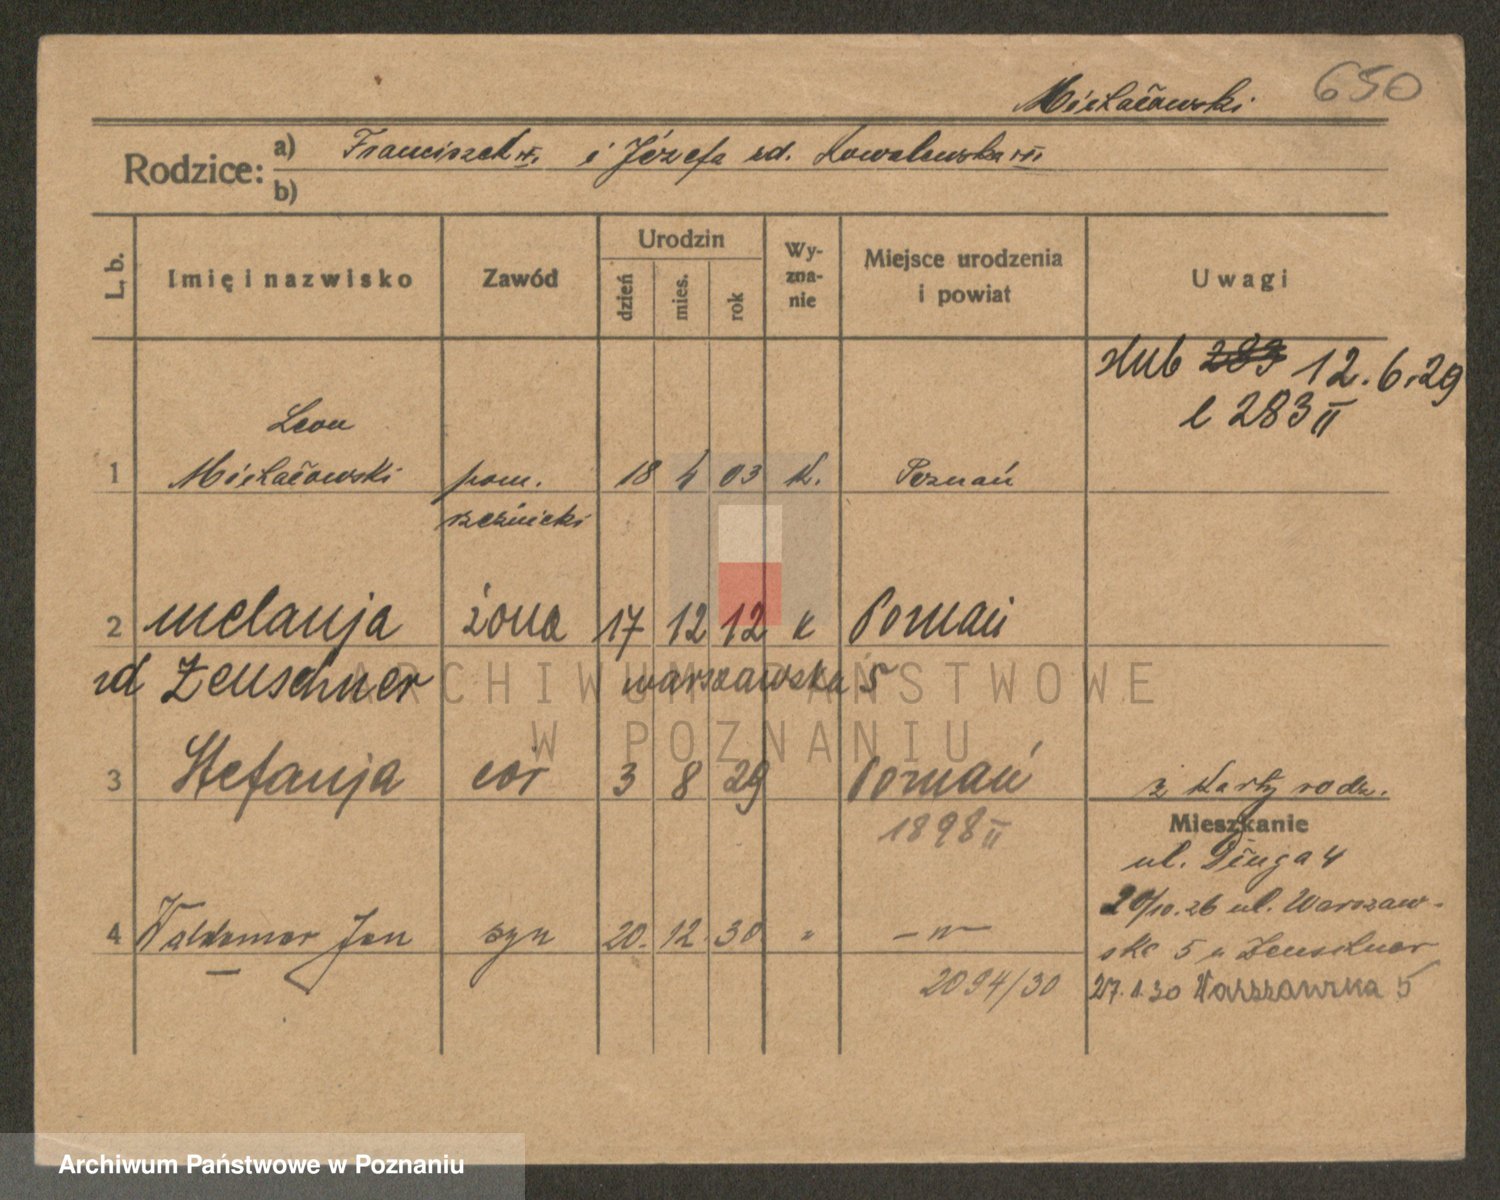 650
Rodzice: a) Franciszek i Józefa zd. Kowalewska
b)
L. b. Imię i nazwisko Zawód Urodzin dzień mies. rok Wy-zna-nie Miejsce urodzenia i powiat Uwagi
ślub 283 12.6.29
l 283 II
Leon
1 pom. 18 4 03 k. Poznań
rzeźnicki
2 Melanja żona 17 12 12 k Poznań
zd Zeuschner warszawska 5
3 Stefanja cór 3 8 29 Poznań z karty rodz.
1898 II
Mieszkanie
ul. Długa 4
4 Waldemar Jan syn 20. 12. 30 " —"—
20/10.26 ul. Warszaw-
ska 5 u Zeuschner
2094/30
27.1.30 Warszawska 5
ARCHIWUM PAŃSTWOWE
W POZNANIU
Archiwum Państwowe w Poznaniu